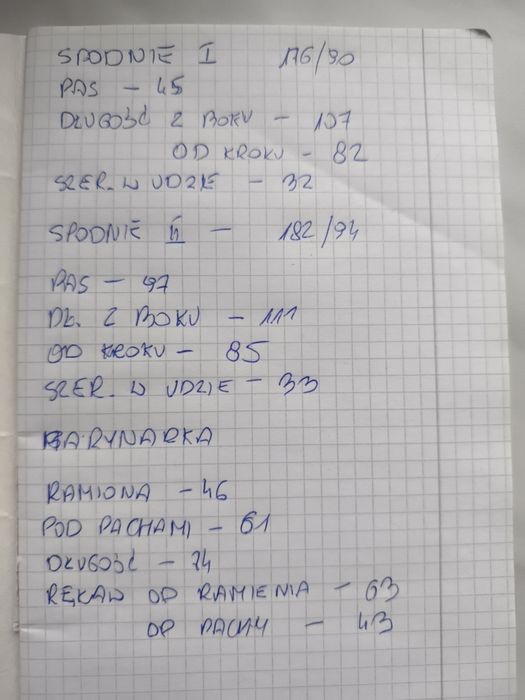 SPODNIE I 176/90
PAS - 45
DŁUGOŚĆ Z BOKU - 107
OD KROKU - 82
SZER. W UDZIE - 32
SPODNIE II - 182/94
PAS - 47
DŁ. Z BOKU - 111
OD KROKU - 85
SZER. W UDZIE - 33
MARYNARKA
RAMIONA - 46
POD PACHAMI - 61
DŁUGOŚĆ - 74
RĘKAW OD RAMIENIA - 63
OD PACHY - 43